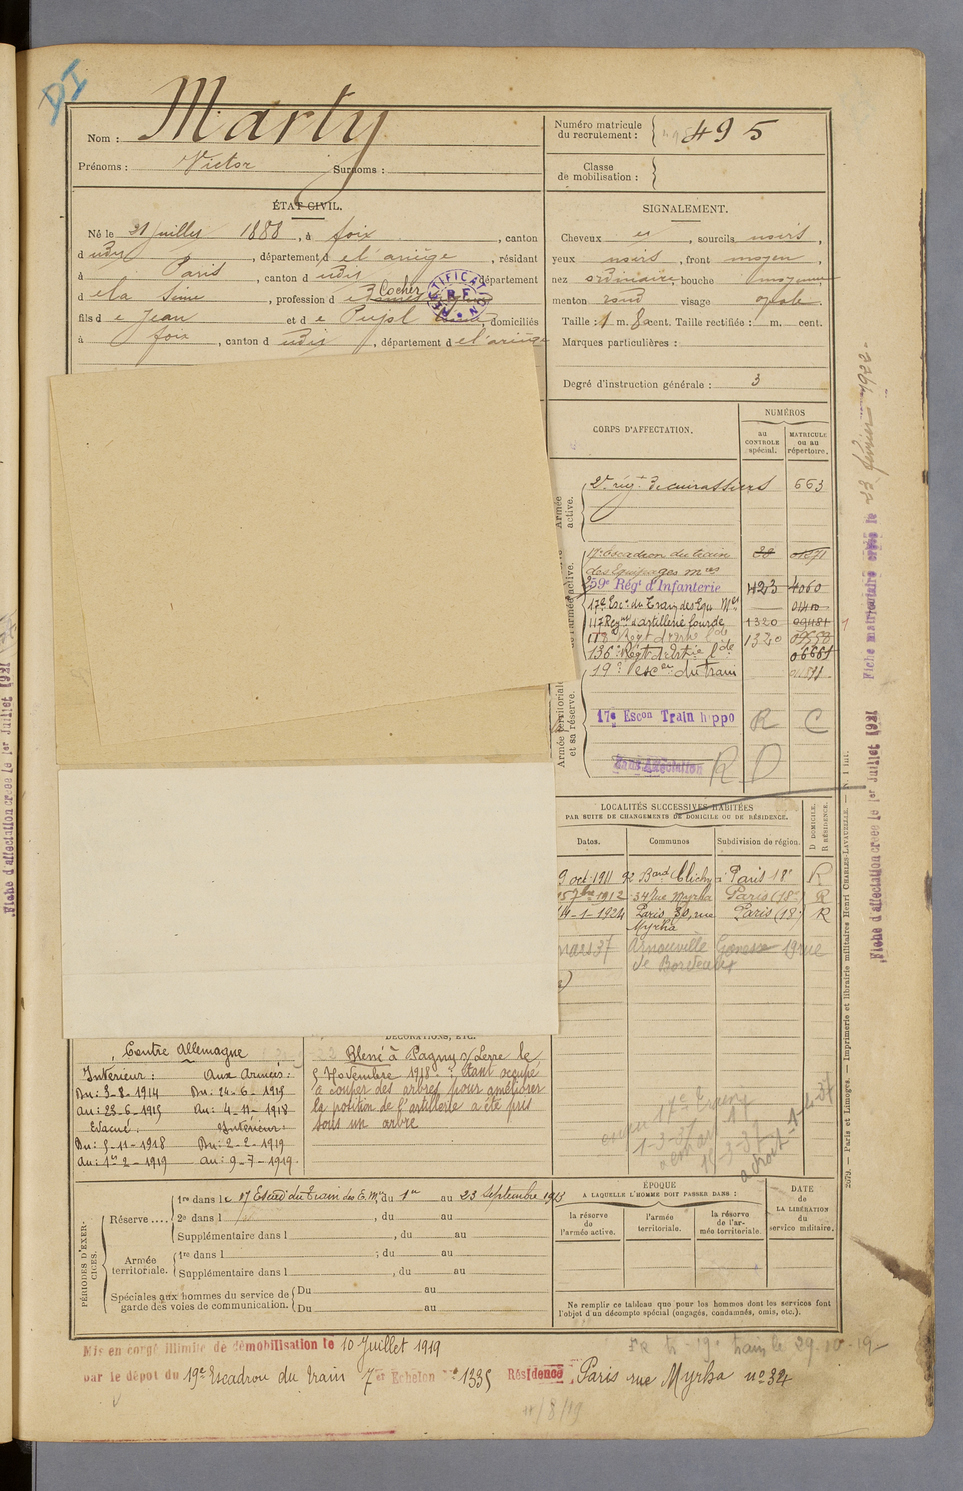 DI
Nom : Marty
Prénoms : Victor Surnoms :
Numéro matricule
du recrutement : 495
Classe
de mobilisation :
ÉTAT CIVIL.
Né le 31 juillet 1888, à foix, canton
d udit, département d e l'ariège, résidant
à Paris, canton d udit, département
d e la Seine, profession d e Cocher
RECTIFICATION R.F.
fils d e Jean et d e Pujol, domiciliés
à foix, canton d udit, département d e l'ariège
SIGNALEMENT.
Cheveux , sourcils noirs,
yeux noirs, front moyen,
nez ordinaire, bouche moyenne
menton rond visage ovale
Taille : 1 m. cent. Taille rectifiée : m. cent.
Marques particulières :
Degré d'instruction générale : 3
CORPS D'AFFECTATION.
NUMÉROS
au
CONTROLE
spécial.
MATRICULE
ou au
répertoire.
Armée
active.
2e régt de cuirassiers 663
17e Escadron du train 01671
des Equipages mres
59e Régt d'Infanterie 423 4060
17e Escn du Train des Equ. Mres
117 Regnt d'artillerie lourde 1320
118e Régt 1320
136e Régt d'Artie lde 06661
19e escon du train
Armée territoriale
et sa réserve.
17e Escon Train hippo R C
Sans Affectation R D
LOCALITÉS SUCCESSIVES HABITÉES
PAR SUITE DE CHANGEMENTS DE DOMICILE OU DE RÉSIDENCE.
D DOMICILE.
R RÉSIDENCE.
Dates. Communes Subdivision de région.
9 oct. 1911 92 Bard Clichy à Paris 18e R
7bre 1912 34 Rue Myrha Paris (18e) R
-1-1924 Paris, 30, rue Paris (18) R
Myrha
mars 37 Arnouville Gonesse 19 rue
de Bordeaux
DÉCORATIONS, ETC.
Contre Allemagne
Intérieur : Aux Armées :
Du : 3-8-1914 Du : 24-6-1915
au : 23-6-1915 Au : 4-11-1918
Evacué : Intérieur :
Du : 5-11-1918 Du : 2-2-1919
Au : 1er 2-1919 au : 9-7-1919.
Blessé à Pagny s/ le
5 Novembre 1918 : étant occupé
à couper des arbres pour améliorer
la position de l'artillerie a été pris
sous un arbre
17e Train
1-3-37
PÉRIODES D'EXERCICES.
Réserve ....
1re dans le 17 Escad du Train des E. Mres du 1er au 23 Septembre 1913
2e dans l , du au
Supplémentaire dans l , du au
Armée
territoriale.
1re dans l ; du au
Supplémentaire dans l , du au
Spéciales aux hommes du service de
garde des voies de communication.
Du au
Du au
ÉPOQUE
A LAQUELLE L'HOMME DOIT PASSER DANS :
la réserve
de
l'armée active.
l'armée
territoriale.
la réserve
de l'ar-
mée territoriale.
DATE
de
LA LIBÉRATION
du
service militaire.
Ne remplir ce tableau que pour les hommes dont les services font
l'objet d'un décompte spécial (engagés, condamnés, omis, etc.).
Mis en congé illimité de démobilisation le 10 Juillet 1919
par le dépôt du 19e Escadron du train 7e Echelon no 1335 Résidence Paris rue Myrha no 34
train le 29-10-19
11/8/19
2079. — Paris et Limoges. — Imprimerie et librairie militaires Henri CHARLES-LAVAUZELLE.
Fiche matriculaire créée le 23 février 1922
Fiche d'affectation créée le 1er Juillet 1921
Fiche d'affectation créée le 1er Juillet 1921